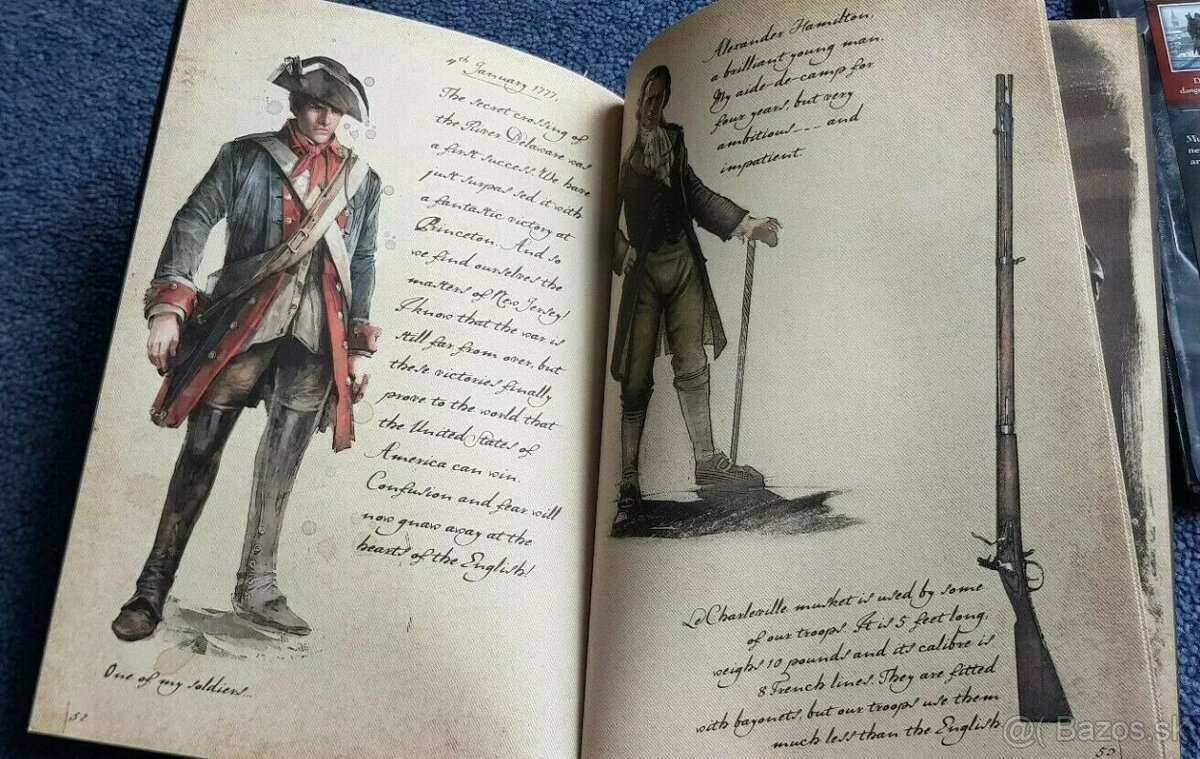 4th January 1777.
The secret crossing of
the River Delaware was
a first success. We have
just surpas sed it with
a fantastic victory at
Princeton. And so
we find ourselves the
masters of New Jersey!
I know that the war is
still far from over, but
these victories finally
prove to the world that
the United States of
America can win.
Confusion and fear will
now gnaw away at the
hearts of the English!
One of my soldiers...
52
Alexander Hamilton,
a brilliant young man.
My aide-de-camp for
four years, but very
ambitious--- and
impatient
Le Charleville musket is used by some
of our troops. It is 5 feet long,
weighs 10 pounds and its calibre is
8 French lines. They are fitted
with bayonets, but our troops use them
much less than the English.
Bazos.sk